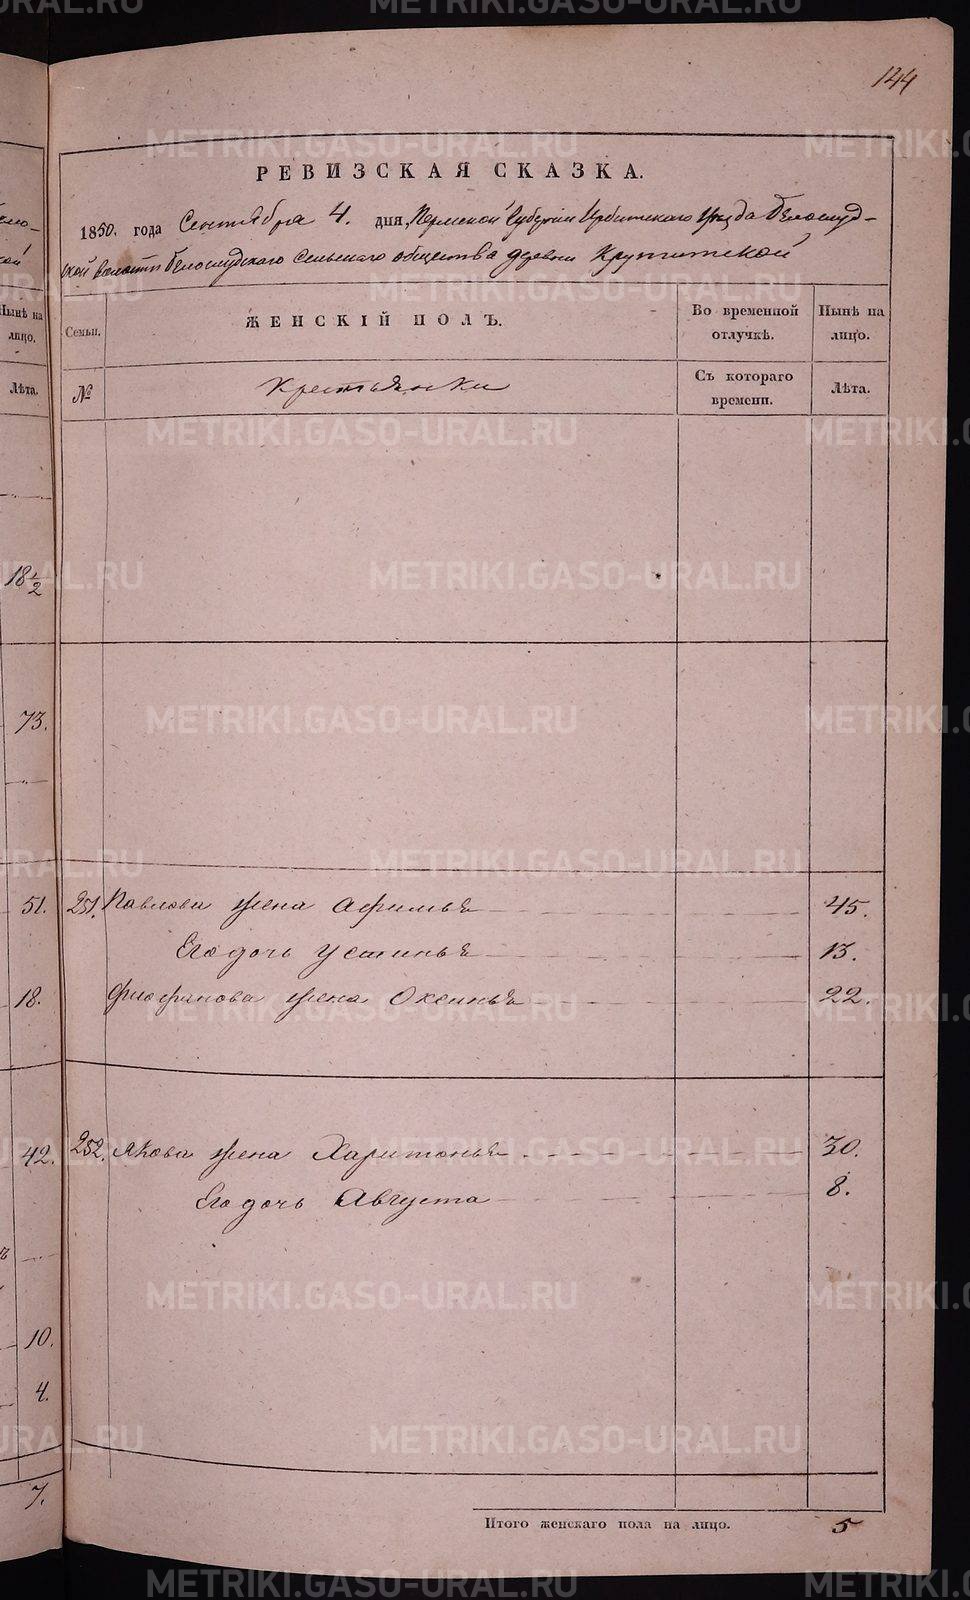 144
РЕВИЗСКАЯ СКАЗКА.
1850. года Сентября 4. дня, Пермской Губернии Ирбитскаго Уезда Белослуд-
ской волости Белослудскаго Сельскаго общества деревни Крутитской
Семьи.
ЖЕНСКІЙ ПОЛЪ.
Во временной отлучкѣ.
Нынѣ на лицо.
№
Крестьянки
Съ котораго времени.
Лѣта.
251. Павлова жена Афимья 45.
Его дочь Устинья 13.
Фиофанова жена Оксинья 22.
252. Якова жена Харитонья 30.
Его дочь Августа 8.
Итого женскаго пола на лицо. 5
Нынѣ на лицо.
Лѣта.
18 1/2
73.
51.
18.
42.
10.
4.
7.
METRIKI.GASO-URAL.RU